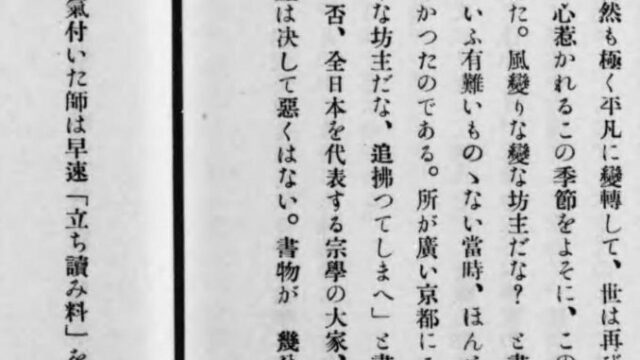 然も極く平凡に變轉して、世は再び
心惹かれるこの季節をよそに、この
た。風變りな變な坊主だな？　と書
いふ有難いものゝない當時、ほん
かつたのである。所が廣い京都に
な坊主だな、追拂つてしまへ」と書
否、全日本を代表する宗學の大家、
は決して惡くはない。書物が　幾
氣付いた師は早速「立ち讀み料」を